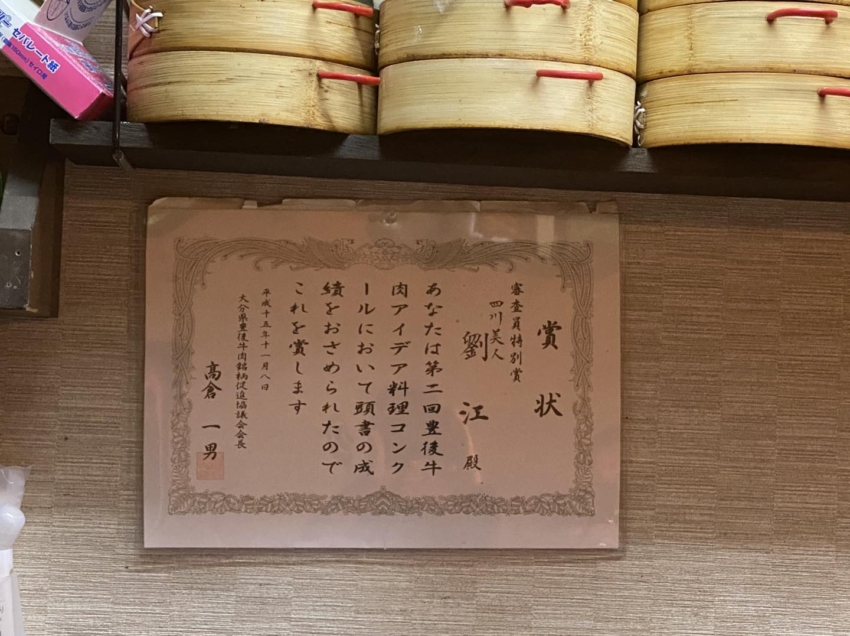 賞状
審査員特別賞
四川美人
劉江殿
あなたは第二回豊後牛
肉アイデア料理コンク
ールにおいて頭書の成
績をおさめられたので
これを賞します
平成十五年十一月八日
大分県豊後牛肉銘柄促進協議会会長
高倉一男
セパレート紙
セイロ用